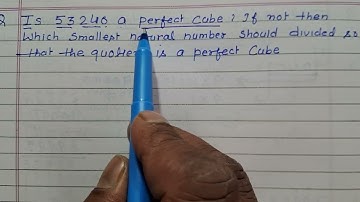 Q Is 53240 a perfect cube? If not then
which smallest natural number should divided so
that the quotient is a perfect cube